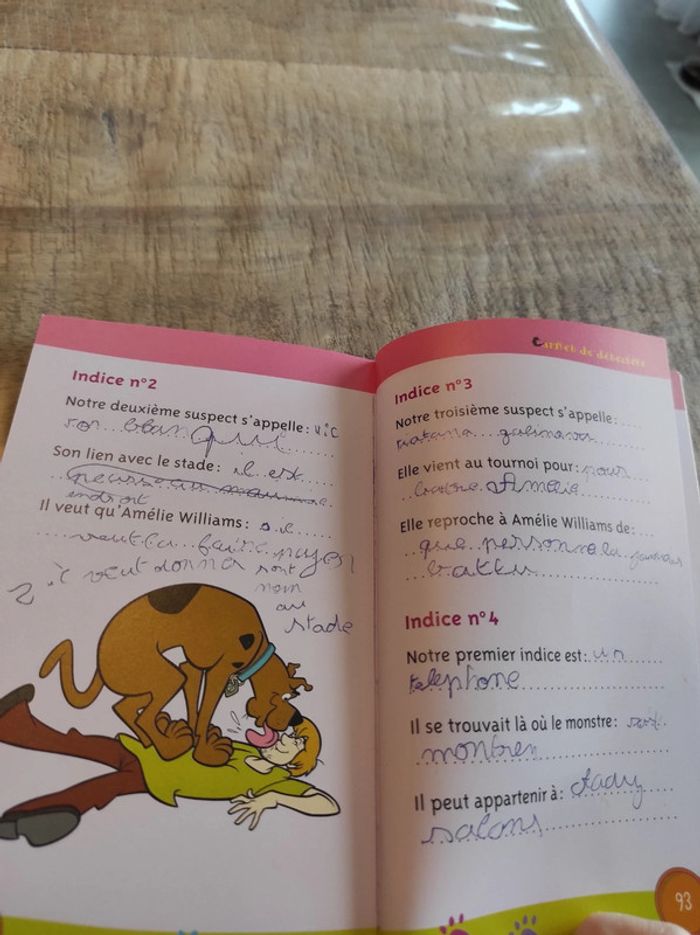 Indice n°2
Notre deuxième suspect s'appelle : vic
tor blanqui
Son lien avec le stade : il est
endroit
Il veut qu'Amélie Williams : il
veut la faire payer
2 il veut donner sont
nom
au
stade
Carnet de détective
Indice n°3
Notre troisième suspect s'appelle :
Elle vient au tournoi pour : pour
battre Amélie
Elle reproche à Amélie Williams de :
que personne la jamais
battu
Indice n°4
Notre premier indice est : un
telephone
Il se trouvait là où le monstre :
montrer
Il peut appartenir à :
salons
93